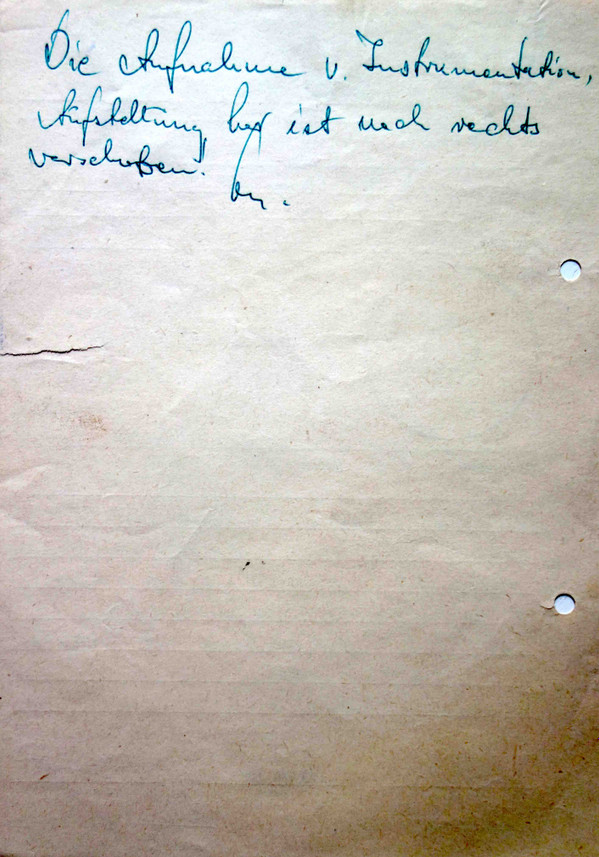 Die Aufnahme v. Instrumentation,
Aufstellung ist nach rechts
verschoben.